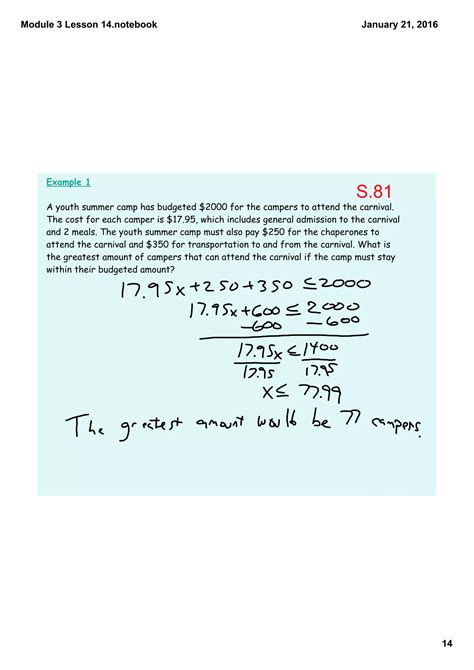 Module 3 Lesson 14.notebook
January 21, 2016
Example 1
S.81
A youth summer camp has budgeted $2000 for the campers to attend the carnival.
The cost for each camper is $17.95, which includes general admission to the carnival
and 2 meals. The youth summer camp must also pay $250 for the chaperones to
attend the carnival and $350 for transportation to and from the carnival. What is
the greatest amount of campers that can attend the carnival if the camp must stay
within their budgeted amount?
17.95x+250+350 ≤2000
17.95x+600 ≤ 2000
-600 -600
17.95x ≤1400
17.95 17.95
x≤ 77.99
The greatest amount would be 77 campers.
14